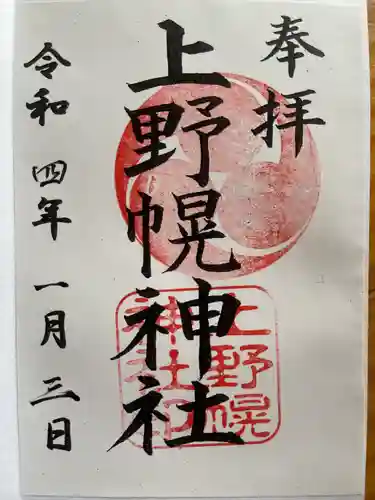 奉拝
上野幌神社
令和四年一月三日
上野幌
神社印